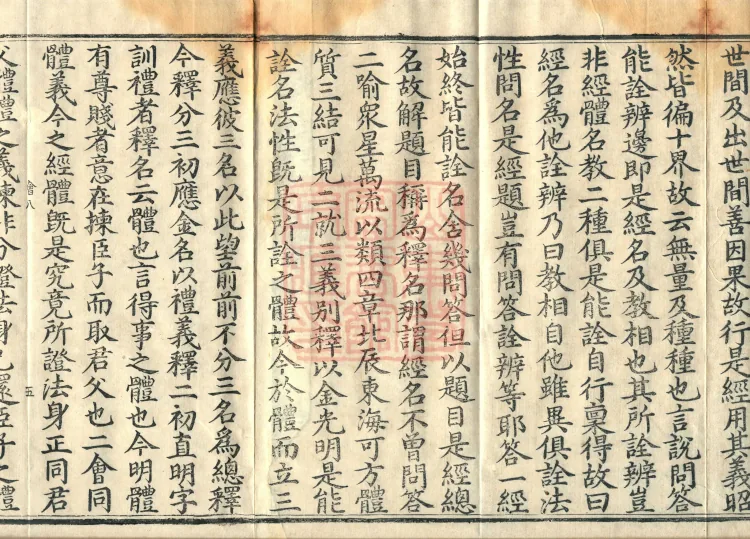 世間及出世間善因果故行是經用其義昭
然皆徧十界故云無量及種種也言說問答
能詮辨邊即是經名及教相也其所詮辨豈
非經體名教二種俱是能詮自行稟得故曰
經名為他詮辨乃曰教相自他雖異俱詮法
性問名是經題豈有問答詮辨等耶答一經
始終皆能詮名含幾問答但以題目是經總
名故解題目稱為釋名那謂經名不曾問答
二喻眾星萬流以類四章北辰東海可方體
質三結可見二就三義別釋以金光明是能
詮名法性旣是所詮之體故今於體而立三
義應彼三名以此望前前不分三名為總釋
今釋分三初應金名以禮義釋二初直明字
訓禮者釋名云體也言得事之體也今明體
有尊賤者意在揀臣子而取君父也二會同
體義今之經體旣是究竟所證法身正同君
父禮體之義揀非分證法身已還臣子之體
會八
五